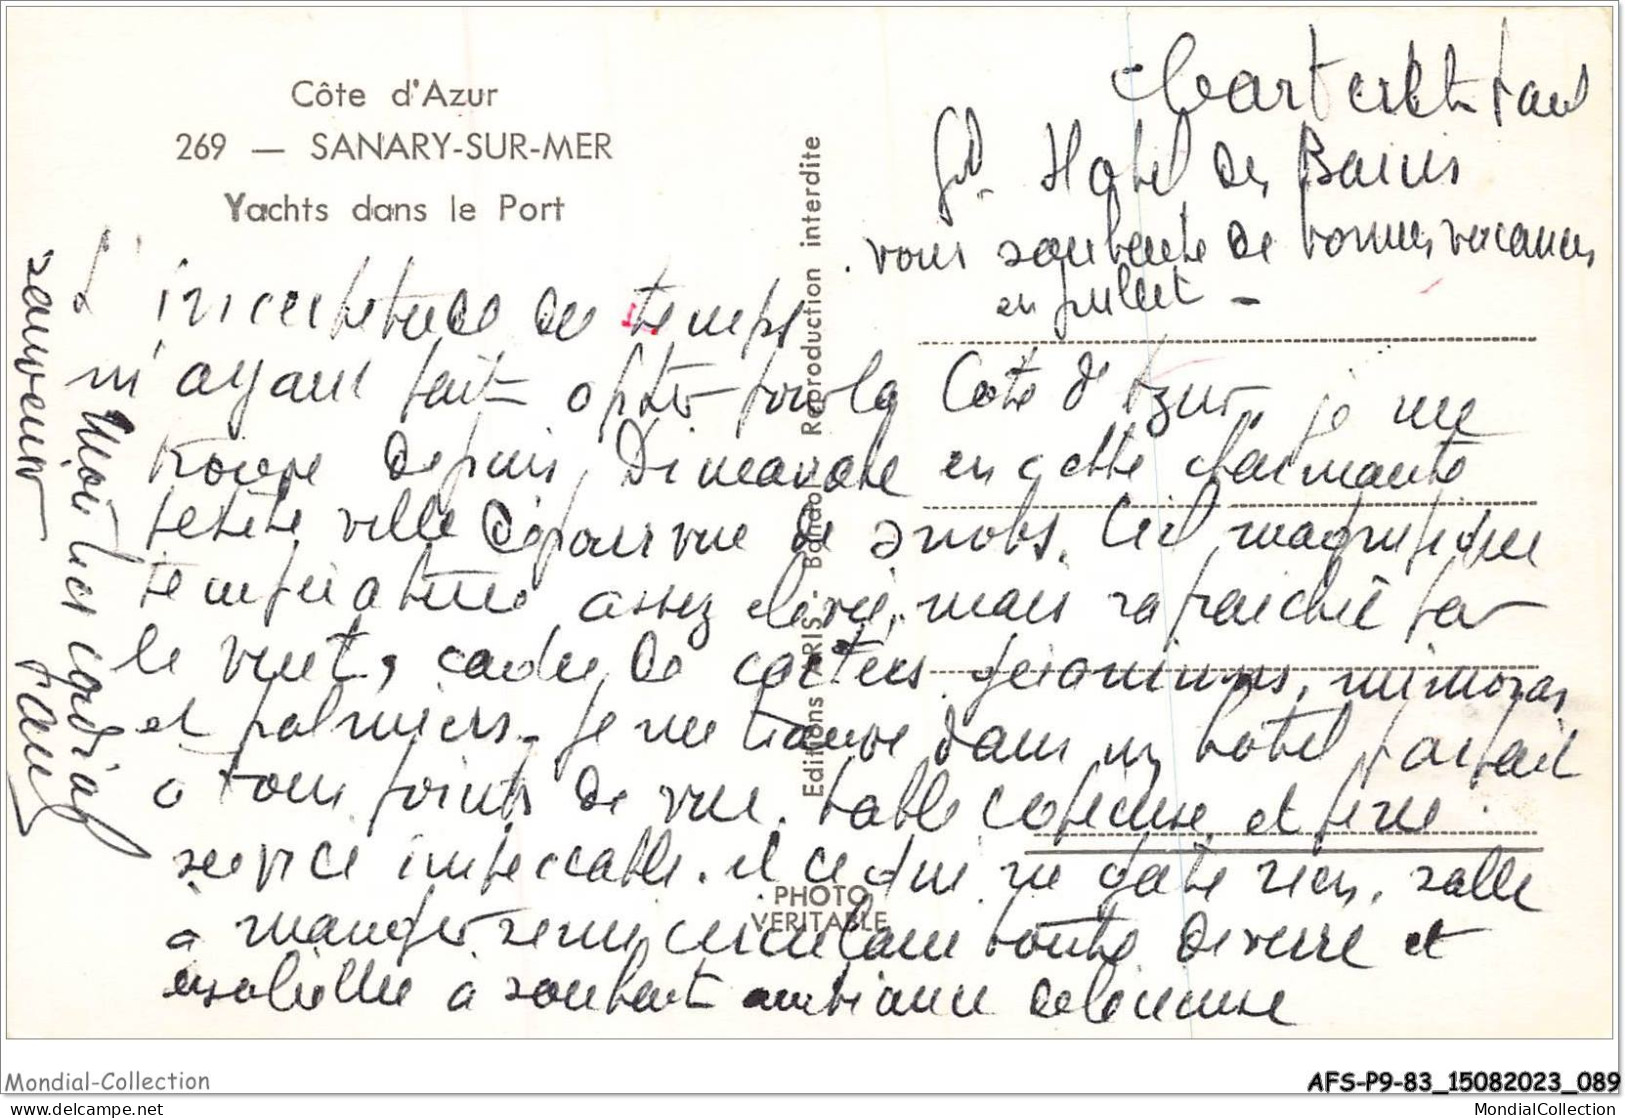 Côte d'Azur
269 — SANARY-SUR-MER
Yachts dans le Port
Paul
Gd. Hotel des Bains
vous souhaite de bonnes vacances
en juillet -
L'incertitude du temps
m'ayant fait opter pour la Cote d'Azur je me
trouve depuis Dimanche en cette charmante
petite ville dépourvue de snobs. Ciel magnifique
température assez élevée, mais rafraichie par
le vent, cadre de cactus geraniums, mimosas
et palmiers. Je me trouve dans un hotel parfait
a tous points de vue. table copieuse et fine
service impeccable. et ce qui ne gate rien, salle
a manger semi circulaire toute de verre et
ensoleillée a souhait ambiance delicieuse
Mon tres cordial
souvenir
Paul
Editions RIS - Bandol Reproduction interdite
PHOTO
VERITABLE
Mondial-Collection
AFS-P9-83_15082023_089
www.delcampe.net
MondialCollection